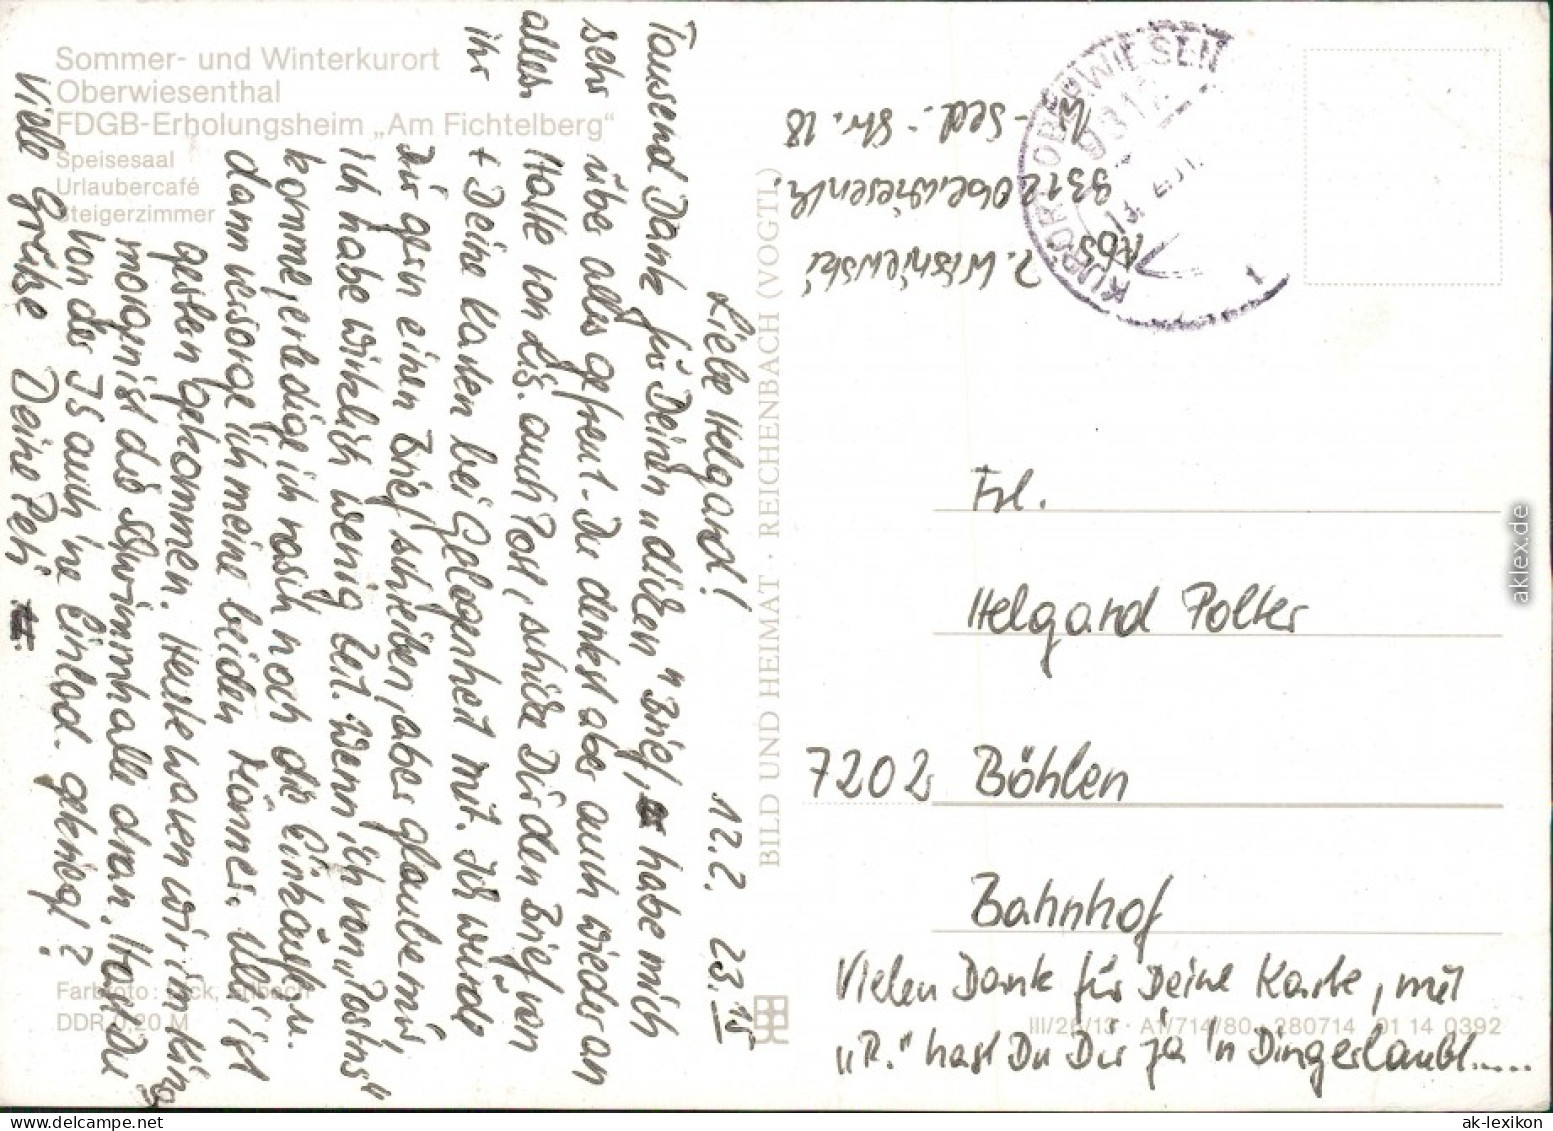 Sommer- und Winterkurort
Oberwiesenthal
FDGB-Erholungsheim „Am Fichtelberg"
Speisesaal
Urlaubercafé
Steigerzimmer
Liebe Helgard! 12.2. 23.15
Tausend Dank für Deinen „dicken" Brief, habe mich
sehr über alles gefreut. Du denkst aber auch wieder an
alles. Hatte von Lis. auch Post, schicke Dir den Brief von
ihr + Deine Karten bei Gelegenheit mit. Ich würde
Dir gern einen Brief schreiben, aber glaube mir,
ich habe wirklich wenig Zeit. Wenn ich vom „Posting"
komme, erledige ich rasch noch die Einkäufe u.
dann versorge ich meine beiden Männer. Uli ist
gestern gekommen. Heute waren wir im Kino
morgen ist die Schwimmhalle dran. Hast Du
von der IS auch 'ne Einlad. gekriegt?
Viele Grüße Deine Peti
BILD UND HEIMAT · REICHENBACH (VOGTL)
J. Wisniewski
9312 Oberwiesenth.
-Sed.-Str. 18
KURORT OBERWIESEN
9312
13. 2.
1
Frl.
Helgard Polter
7202 Böhlen
Bahnhof
Vielen Dank für Deine Karte, mit
„R." hast Du Dir ja 'n Ding erlaubt.....
Farbfoto:
DDR 0,20 M
III/26/13 · A1/714/80 280714 01 14 0392
aklex.de
ak-lexikon